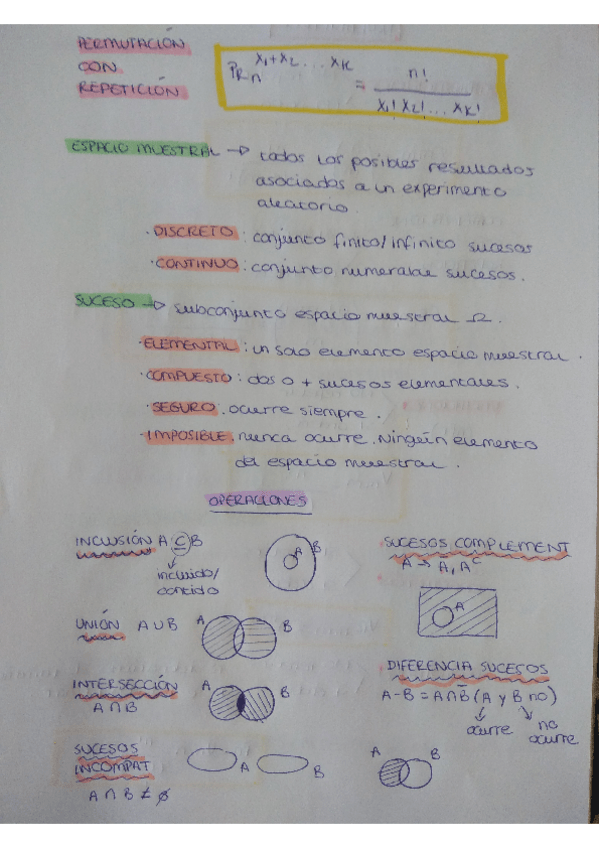 PERMUTACIÓN
CON
REPETICIÓN
PR n X1+X2 ... XK = n! / X1! X2! ... XK!
ESPACIO MUESTRAL → todos los posibles resultados
asociados a un experimento
aleatorio.
· DISCRETO: conjunto finito/infinito sucesos
· CONTINUO: conjunto numerable sucesos.
SUCESO → subconjunto espacio muestral Ω.
· ELEMENTAL: un solo elemento espacio muestral.
· COMPUESTO: dos o + sucesos elementales.
· SEGURO. ocurre siempre.
· IMPOSIBLE. nunca ocurre. Ningún elemento
del espacio muestral.
OPERACIONES
INCLUSIÓN A ⊂ B
incluido/
contido
A B
UNIÓN A ∪ B
A B
INTERSECCIÓN
A ∩ B
A B
SUCESOS
INCOMPAT
A ∩ B ≠ ∅
A B
SUCESOS COMPLEMENT
A → Ā, Aᶜ
A
DIFERENCIA SUCESOS
A - B = A ∩ B̄ (A y B no)
ocurre no
ocurre
A B